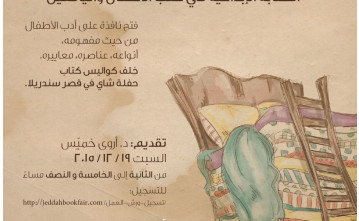 فتح نافذة على أدب الأطفال
من حيث مفهومه،
أنواعه، عناصره، معاييره.
خلف كواليس كتاب
حفلة شاي في قصر سندريلا.
تقديم: د. أروى خميّس
السبت ١٩ / ١٢ / ٢٠١٥
من الثانية إلى الخامسة و النصف مساءً
للتسجيل:
http://jeddahbookfair.com :تسجيل-ورش-العمل